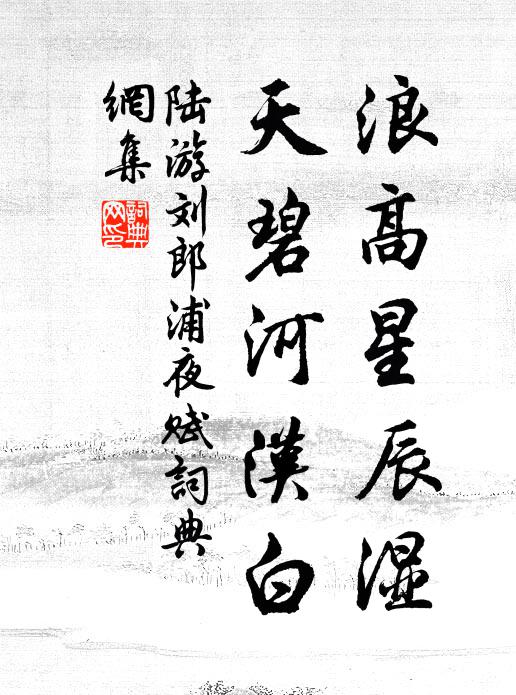 浪高星辰湿
天碧河漢白
陆游刘郎浦夜赋詞典
網集
詞典
网印